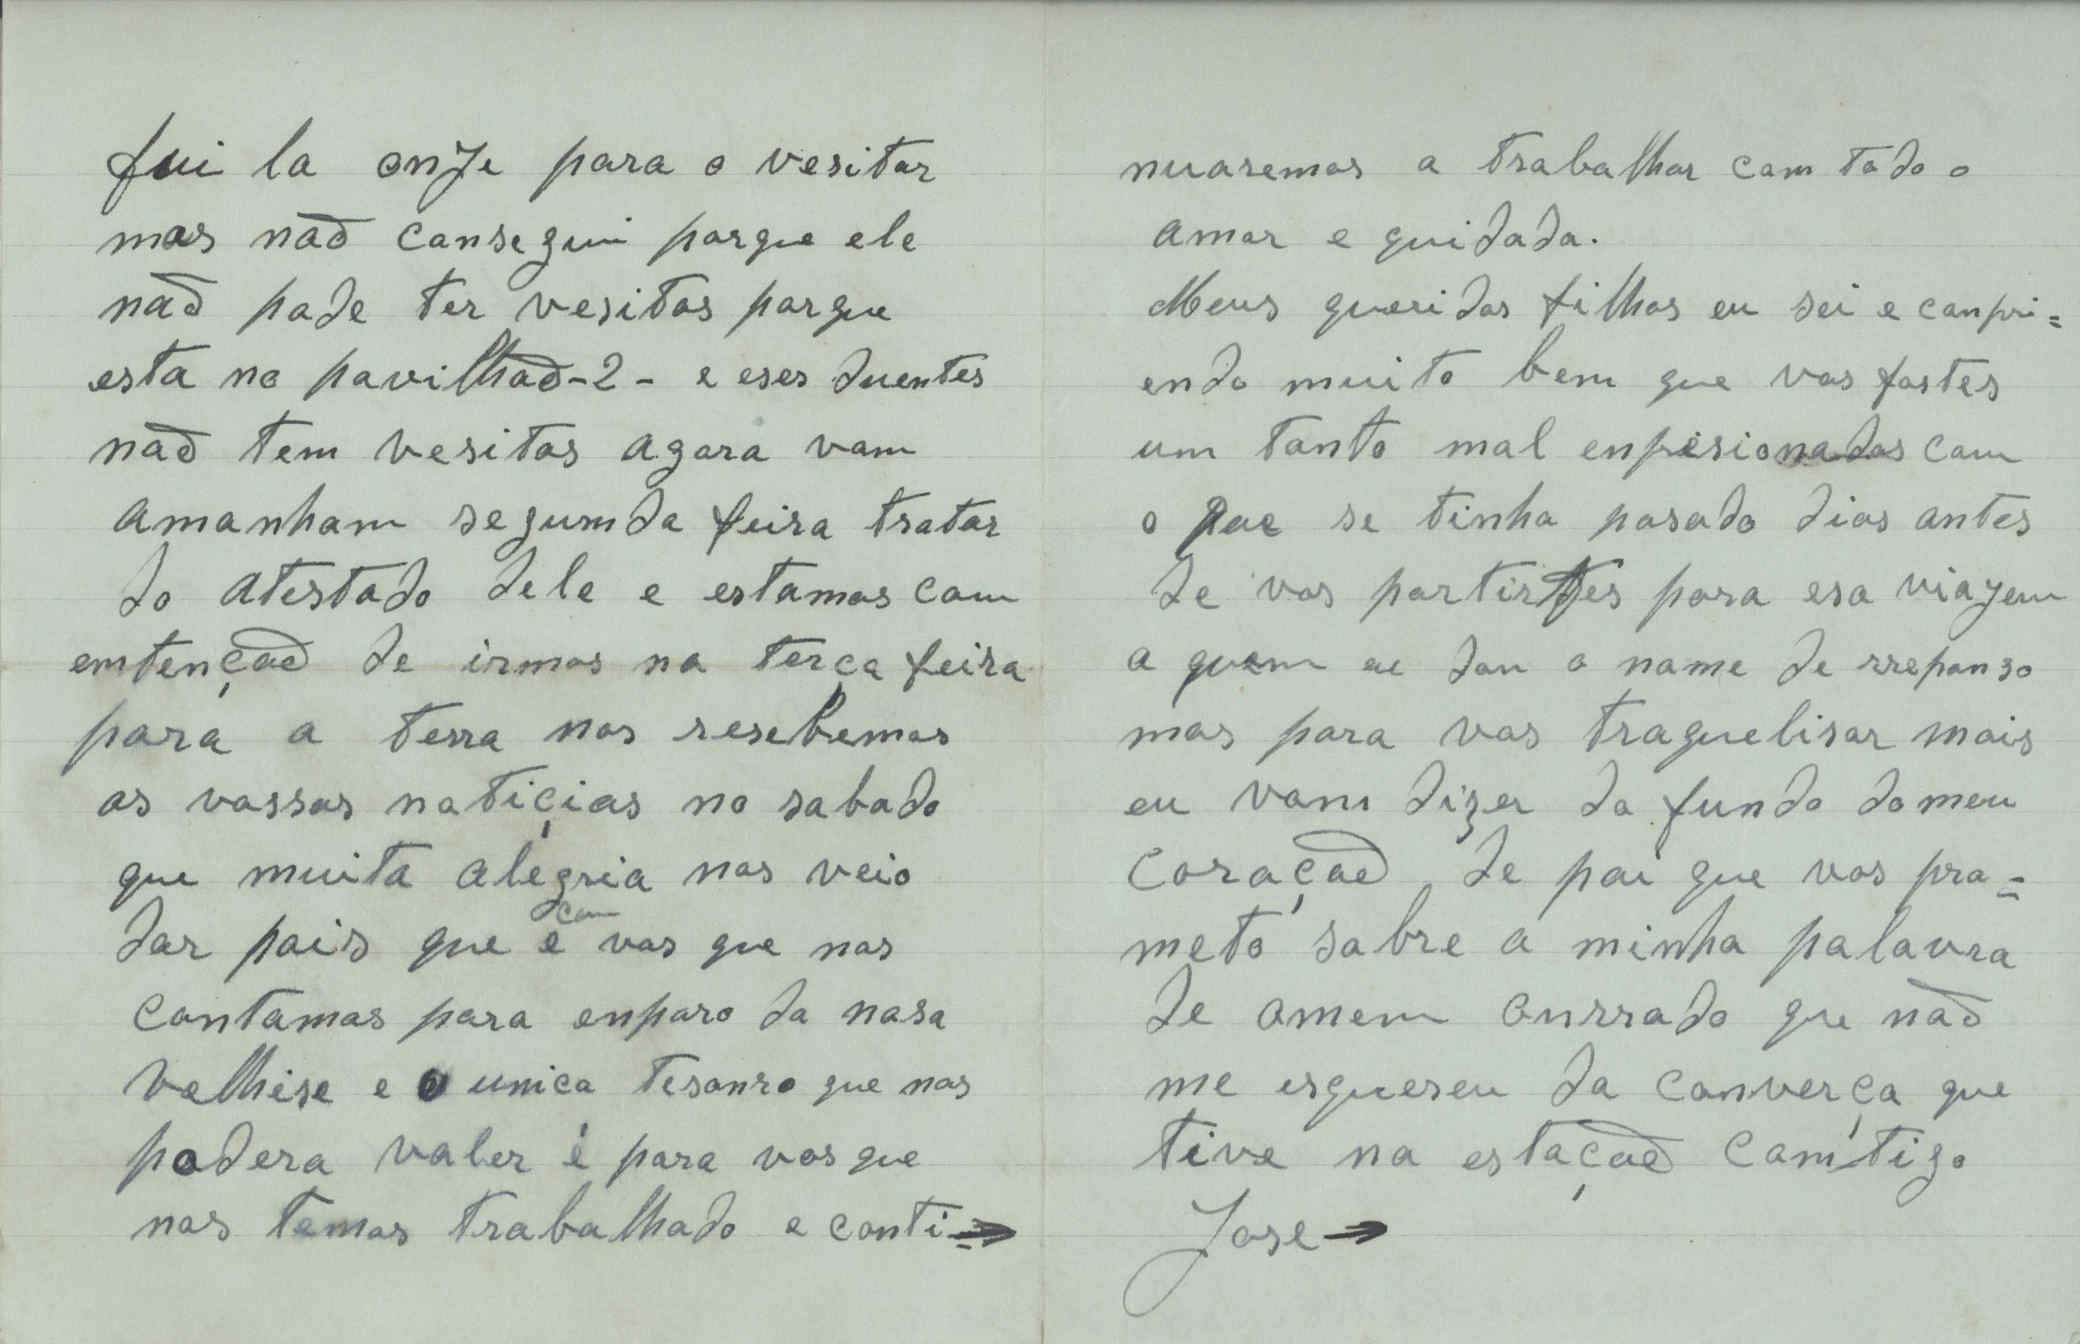 fui la onje para o vesitar
mas não consegui porque ele
não pode ter vesitas porque
esta no pavilhão-2- e eses duentes
não tem vesitas agora vam
amanham segumda feira tratar
do atestado dele e estamos com
emtenção de irmos na terça feira
para a terra nos resebemos
as vossas notiçias no sabado
que muita alegria nos veio
dar pais que é com vos que nos
contamos para enparo da nosa
velhise e o unico tesouro que nos
podera valer é para vos que
nos temos trabalhado e conti=→
nuaremos a trabalhar com todo o
amor e quidado.
Meus queridos filhos eu sei e conpri=
endo muito bem que vos fostes
um tanto mal enpresionados com
o que se tinha pasado dias antes
de vos partirtes para esa viajem
a quem eu dou o nome de rreponso
mas para vos traquelisar mais
eu vou dizer do fundo do meu
coração de pai que vos pro=
meto sobre a minha palavra
de omem onrrado que não
me esqueseu da converça que
tive na estação comtigo
Jose→